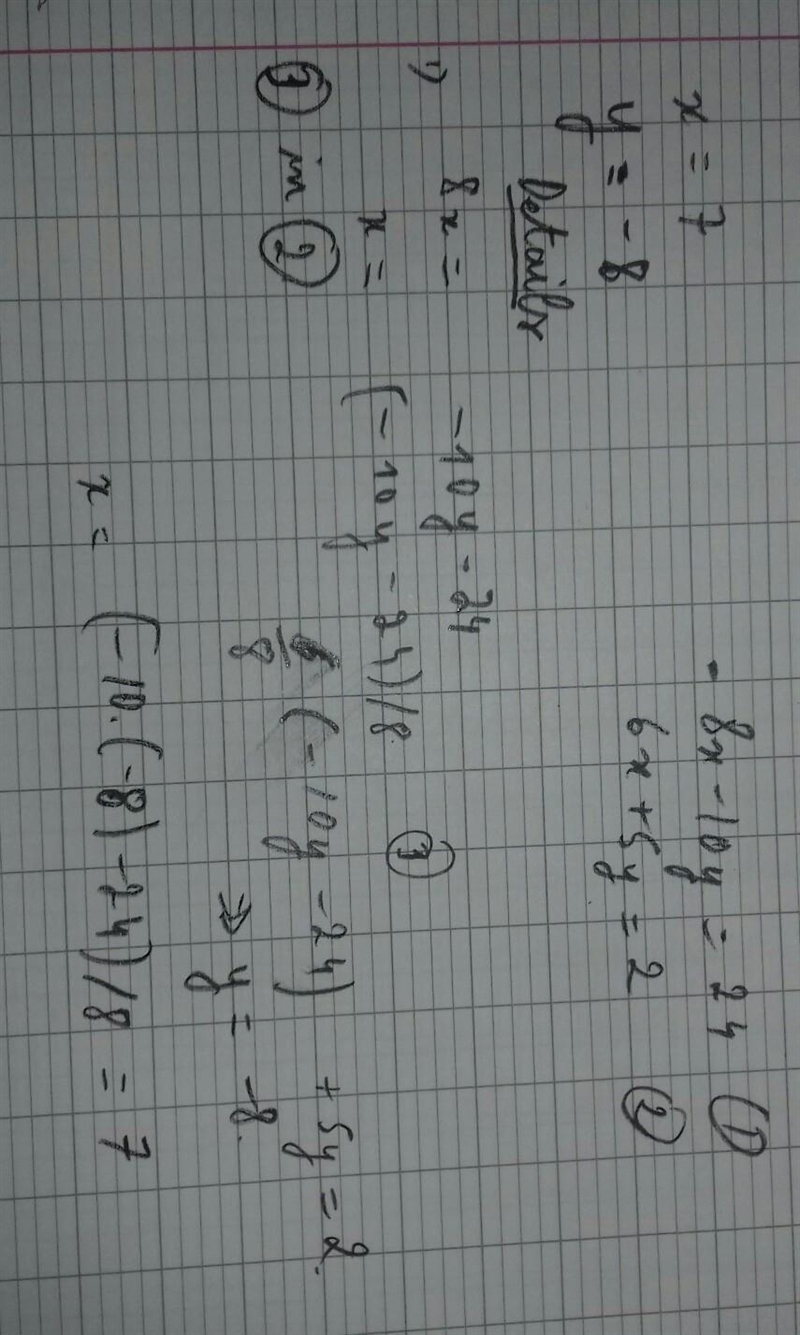 - 8x - 10y = 24 ①
6x + 5y = 2 ②
x = 7
y = - 8
Details
1) 8x = - 10y - 24
x = (- 10y - 24)/8 ③
③ in ② 6/8 (- 10y - 24) + 5y = 2
≫ y = -8
x = (-10.(-8) - 24)/8 = 7